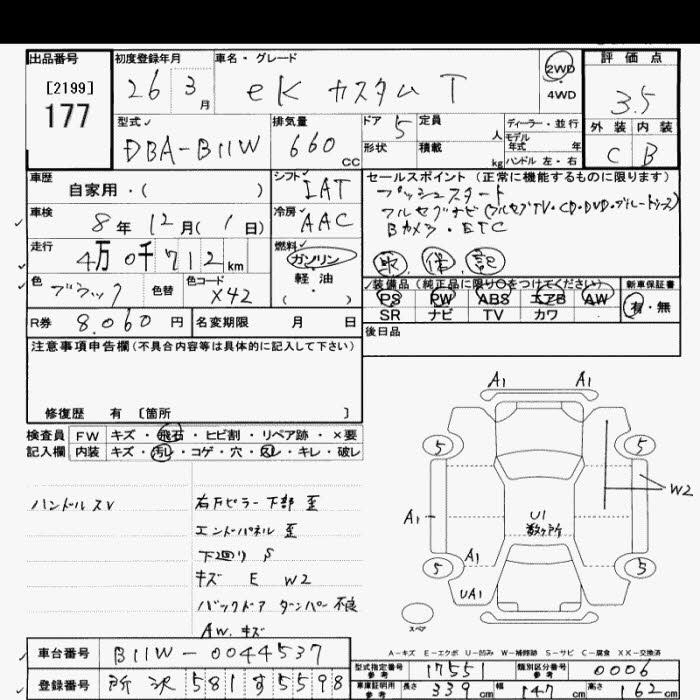 出品番号
[2199]
177
初度登録年月
26 3月
車名・グレード
eK カスタム T
2WD
4WD
評価点
3.5
型式
DBA-B11W
排気量
660 CC
ドア 5
定員 人
形状
積載 kg
ディーラー・並行
モデル年式 年
ハンドル 左・右
外装 内装
C B
車歴
自家用・( )
シフト
IAT
車検
8年 12月(1日)
冷房
AAC
走行
4万0千712km
燃料
ガソリン
軽油
( )
色
ブラック
色替
色コード
X42
R券 8,060円
名変期限 月 日
セールスポイント (正常に機能するものに限ります)
プッシュスタート
フルセグナビ(フルセグTV・CD・DVD・ブルートゥース)
Bカメラ・ETC
取 保 記
装備品 (純正品に限り○をつけてください)
PS PW ABS エアB AW
SR ナビ TV カワ
新車保証書
有・無
後日品
注意事項申告欄(不具合内容等は具体的に記入して下さい)
修復歴 有 [箇所 ]
検査員記入欄
FW キズ・飛石・ヒビ割・リペア跡・×要
内装 キズ・汚レ・コゲ・穴・スレ・キレ・破レ
ハンドルスレ
右Fピラー下部 歪
エンドパネル 歪
下廻り S
キズ E W2
バックドア ダンパー不良
AW. キズ
A1 A1
5 5
W2
A1
U1
数ヶ所
A1
5 5
UA1
スペア
A-キズ E-エクボ U-凹み W-補修跡 S-サビ C-腐食 XX-交換済
車台番号 B11W-0044537
登録番号 所沢 581 す 5598
型式指定番号 参考 17551
類別区分番号 参考 0006
車庫証明用 参考 長さ 339cm 幅 147cm 高さ 162cm